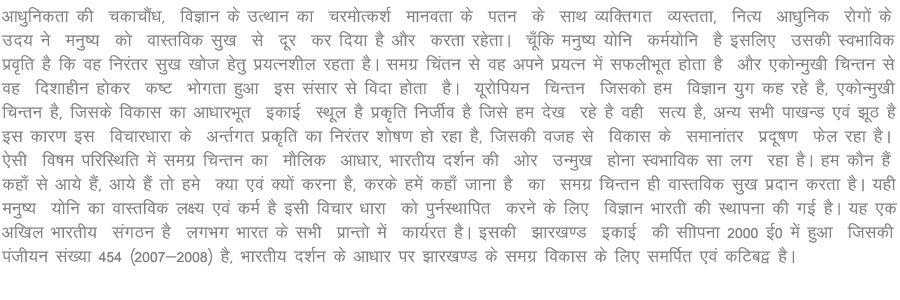 आधुनिकता की चकाचौंध, विज्ञान के उत्थान का चरमोत्कर्श मानवता के पतन के साथ व्यक्तिगत व्यस्तता, नित्य आधुनिक रोगों के
उदय ने मनुष्य को वास्तविक सुख से दूर कर दिया है और करता रहेता। चूँकि मनुष्य योनि कर्मयोनि है इसलिए उसकी स्वभाविक
प्रवृति है कि वह निरंतर सुख खोज हेतु प्रयत्नशील रहता है। समग्र चिंतन से वह अपने प्रयत्न में सफलीभूत होता है और एकोन्मुखी चिन्तन से
वह दिशाहीन होकर कष्ट भोगता हुआ इस संसार से विदा होता है। यूरोपियन चिन्तन जिसको हम विज्ञान युग कह रहे है, एकोन्मुखी
चिन्तन है, जिसके विकास का आधारभूत इकाई स्थूल है प्रकृति निर्जीव है जिसे हम देख रहे है वही सत्य है, अन्य सभी पाखन्ड एवं झूठ है
इस कारण इस विचारधारा के अर्न्तगत प्रकृति का निरंतर शोषण हो रहा है, जिसकी वजह से विकास के समानांतर प्रदूषण फेल रहा है।
ऐसी विषम परिस्थिति में समग्र चिन्तन का मौलिक आधार, भारतीय दर्शन की ओर उन्मुख होना स्वभाविक सा लग रहा है। हम कौन हैं
कहाँ से आये हैं, आये हैं तो हमे क्या एवं क्यों करना है, करके हमें कहाँ जाना है का समग्र चिन्तन ही वास्तविक सुख प्रदान करता है। यही
मनुष्य योनि का वास्तविक लक्ष्य एवं कर्म है इसी विचार धारा को पुर्नस्थापित करने के लिए विज्ञान भारती की स्थापना की गई है। यह एक
अखिल भारतीय संगठन है लगभग भारत के सभी प्रान्तो में कार्यरत है। इसकी झारखण्ड इकाई की सीापना 2000 ई0 में हुआ जिसकी
पंजीयन संख्या 454 (2007–2008) है, भारतीय दर्शन के आधार पर झारखण्ड के समग्र विकास के लिए समर्पित एवं कटिबद्व है।